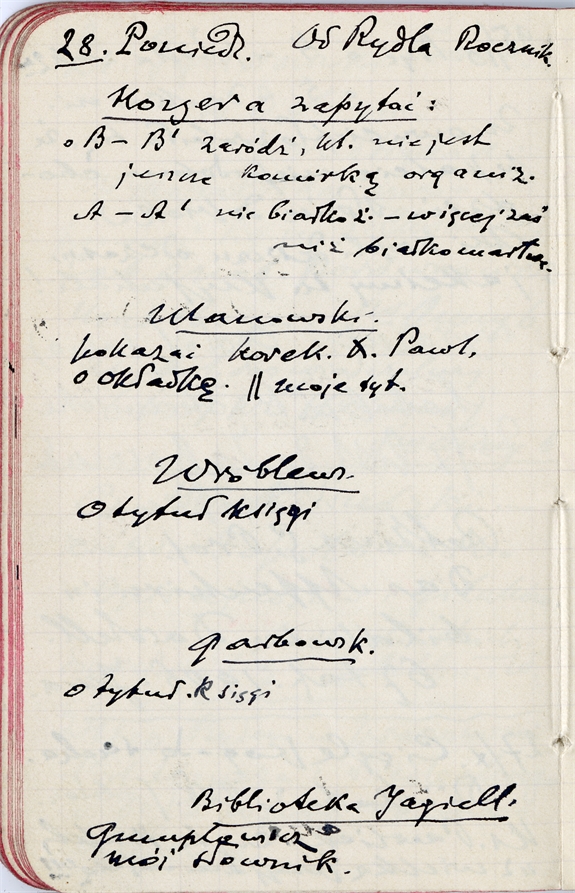 28. Poniedz. Od Rydla Rocznik.
Hozera zapytać:
o B – B' zaródź, kt. nie jest
jeszcze komórką organiz.
A – A' nie białkoż. – więcej zaś
niż białkomartw.
Ulanowski.
pokazać korek. X. Pawl.
o okładkę. || moje tyt.
Wróblews.
o tytuł księgi
Garbowsk.
o tytuł. Księgi
Biblioteka Jagiell.
Gumplowicz
mój słownik.